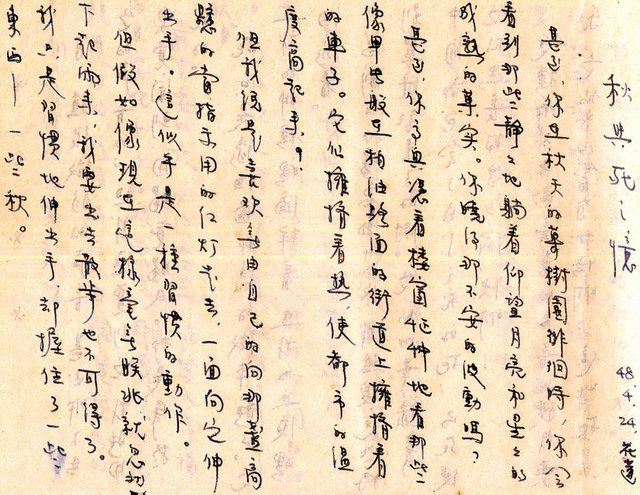 秋與死之憶
48.4.24.花蓮
甚至,你在秋天的菓樹園徘徊時,你會
看到那些靜靜地躺着仰望月亮和星星的
成熟的菓实。你曉得那不安的波動嗎?
甚至,你高興憑着樓窗怔忡地看那些
像甲虫般在柏油鋪面的街道上擁擠着
的車子。它们擁擠着熱,使都市的溫
度高起來。
但我總是喜欢無由自己的向那盞高
懸的當指示用的红灯走去,一面向它伸
出手。這似乎是一種習慣的動作。
但假如像現在這樣毫無朕兆就忽
下起雨來,我要出去散步也不可得了。
我只是習慣地伸出手,却握住了一些
東西——一些秋。